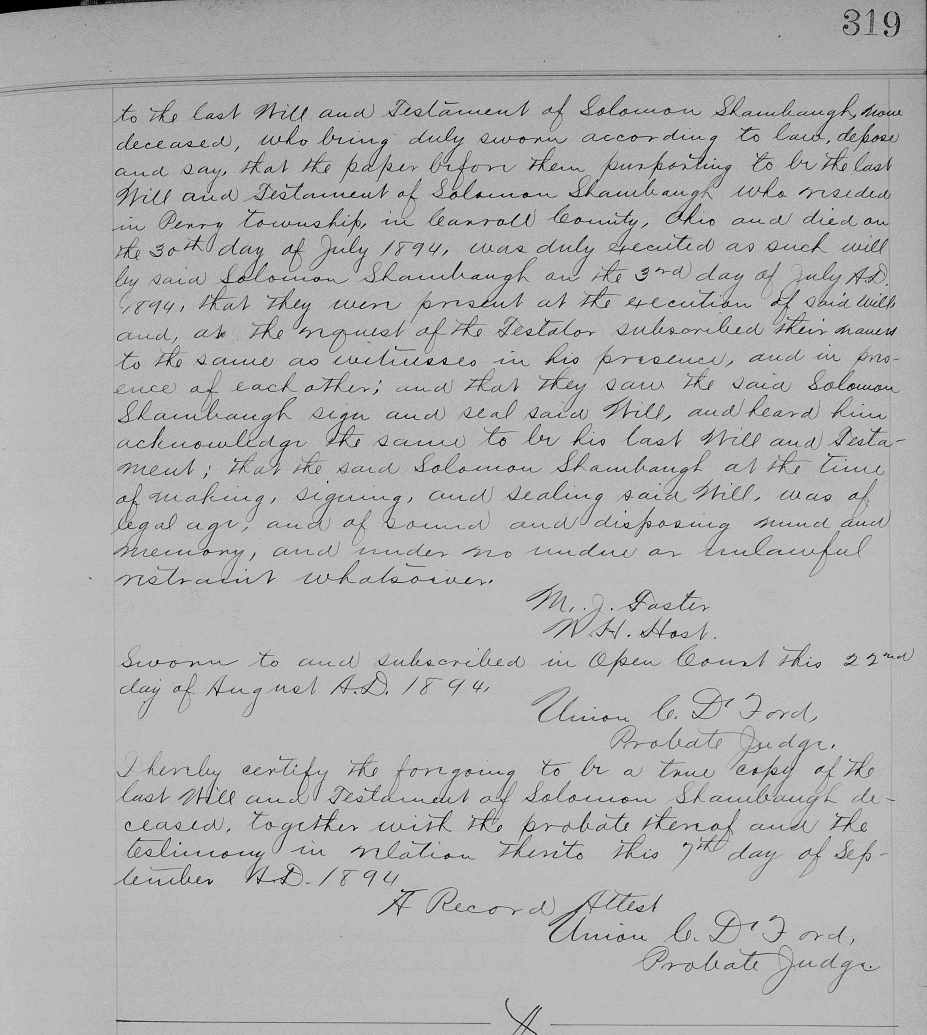 319
to the last Will and Testament of Solomon Shambaugh, now
deceased, who being duly sworn according to law, depose
and say, that the paper before them purporting to be the last
Will and Testament of Solomon Shambaugh who resided
in Perry township, in Carroll County, Ohio and died on
the 30th day of July 1894, was duly executed as such will
by said Solomon Shambaugh on the 3rd day of July A.D.
1894, that they were present at the execution of said Will
and, at the request of the Testator subscribed their names
to the same as witnesses in his presence, and in pres-
ence of each other; and that they saw the said Solomon
Shambaugh sign and seal said Will, and heard him
acknowledge the same to be his last Will and Testa-
ment; that the said Solomon Shambaugh at the time
of making, signing, and sealing said Will, was of
legal age, and of sound and disposing mind and
memory, and under no undue or unlawful
restraint whatsoever.
M. J. Foster
W. H. Host.
Sworn to and subscribed in Open Court this 22nd
day of August A.D. 1894.
Union C. De Ford,
Probate Judge.
I hereby certify the foregoing to be a true copy of the
last Will and Testament of Solomon Shambaugh de-
ceased, together with the probate thereof and the
testimony in relation thereto this 7th day of Sep-
tember A.D. 1894
A Record Attest
Union C. De Ford,
Probate Judge.